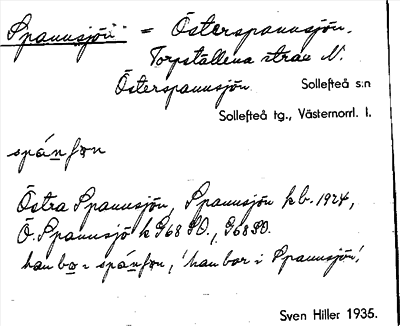 Spannsjön = Österspannsjön.
Torpställena strax N.
Österspannsjön
Sollefteå s:n
Sollefteå tg., Västernorrl. l.
spánʃøn
Östra Spannsjön, Spannsjön kb. 1924,
Ö. Spannsjö k G68 SO., G68 SO.
han bo i spánʃøn, 'han bor i Spannsjön'.
Sven Hiller 1935.